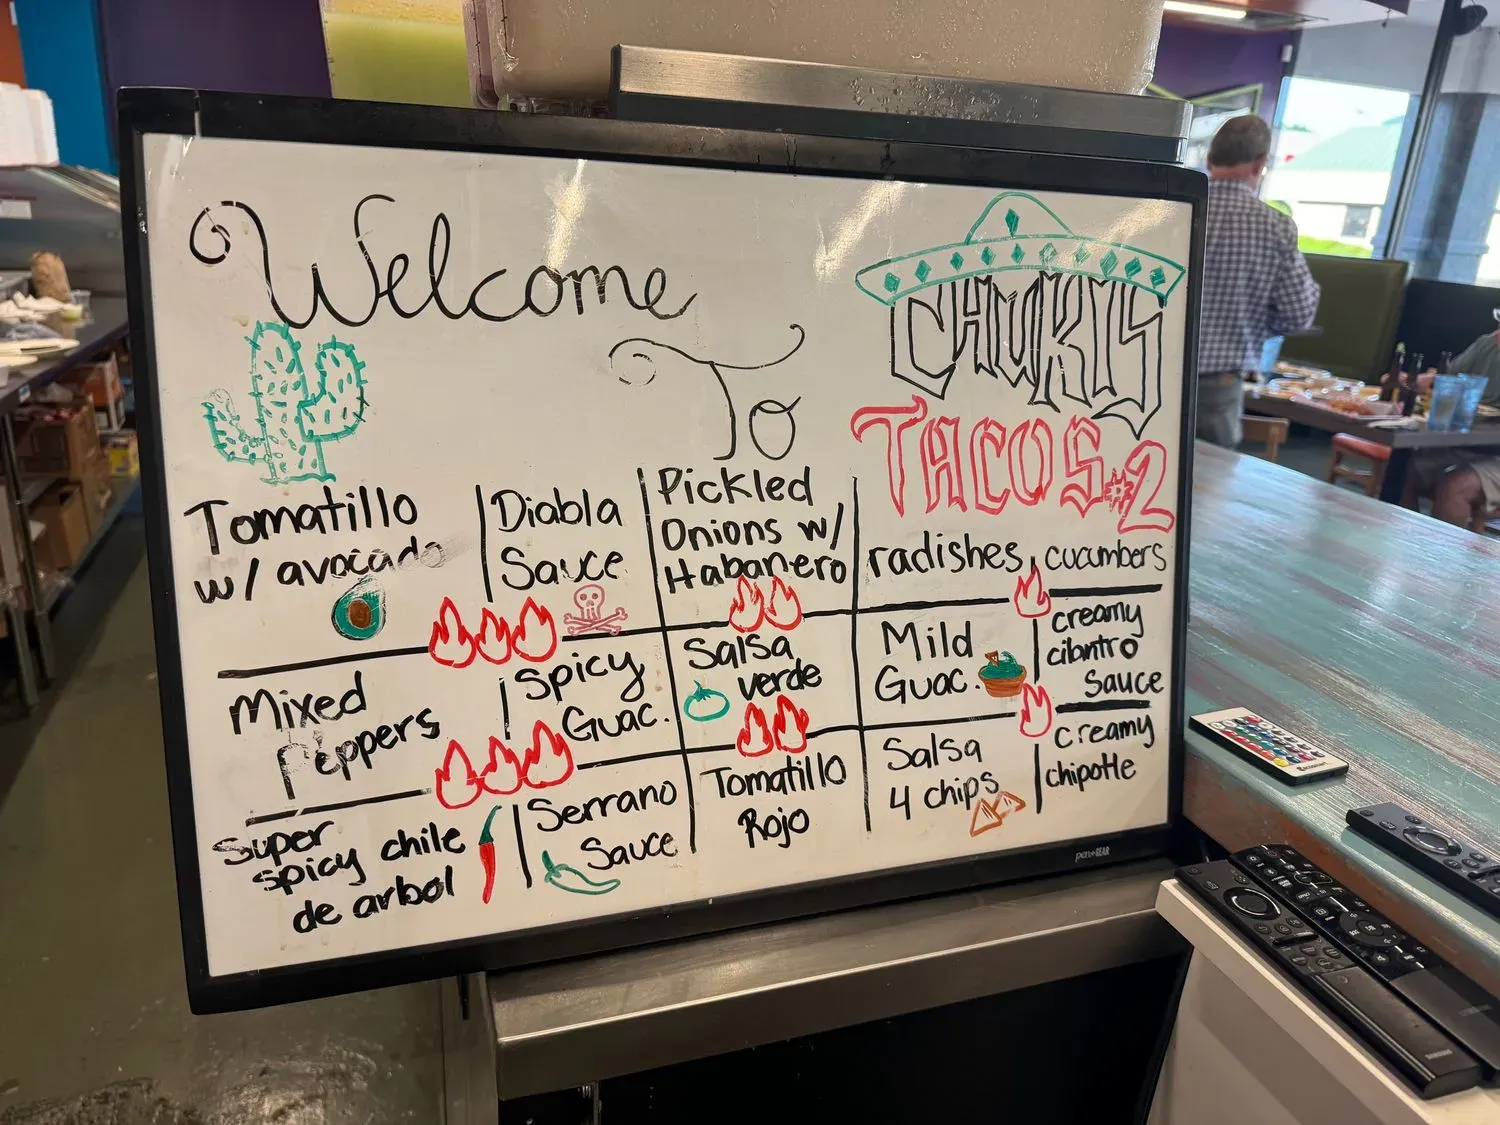 Welcome
To
CHUKIS
TACOS #2
Tomatillo
w/ avocado
Diabla
Sauce
Pickled
Onions w/
Habanero
radishes
cucumbers
Mixed
Peppers
Spicy
Guac.
Salsa
verde
Mild
Guac.
creamy
cilantro
Sauce
Super
spicy chile
de arbol
Serrano
Sauce
Tomatillo
Rojo
Salsa
4 chips
creamy
chipotle
pen+GEAR
SAMSUNG